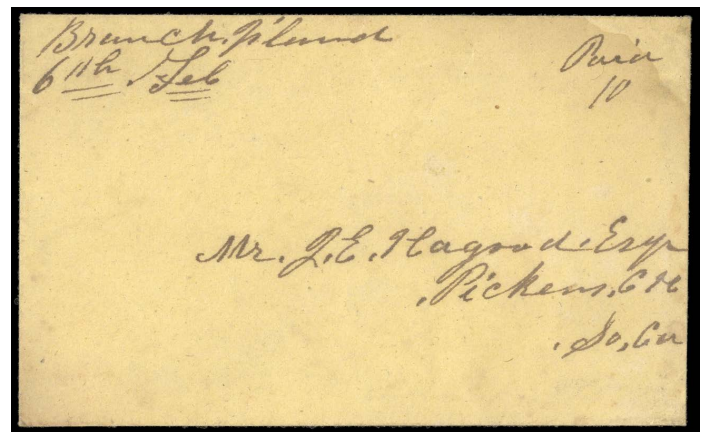 Branch Island
6th Feb
Paid
10
Mr. J. E. Hagood. Esqr
Pickens, C H
So, Ca